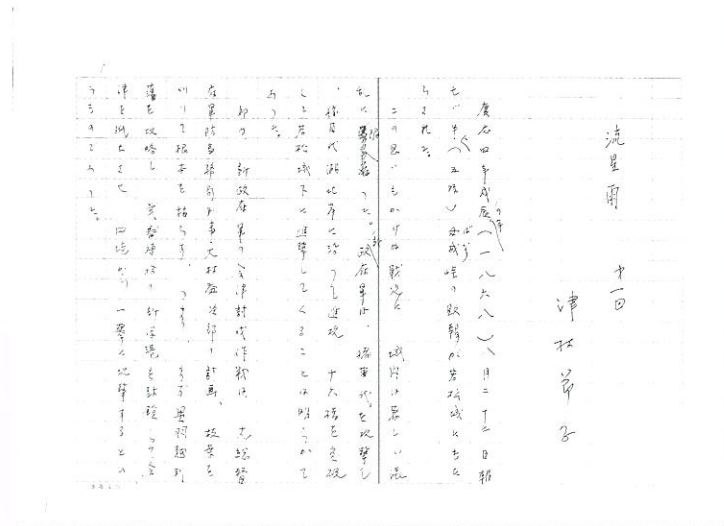 流星雨 第一回
津村節子
慶応四年戊辰の年(一八六八)八月二十二日朝
七ツ半(五時)母成峠の敗報が若松城にもた
らされた。
この思いもかけぬ戦況に 城内は甚しい混
乱に陥った。新政府軍は、猪苗代を攻撃し
、猪苗代湖北岸に沿って進攻 十六橋を突破
して若松城下に進撃してくることは明らかで
あった。
初め 新政府軍の会津討伐作戦は 大総督
府軍防局判事大村益次郎の計画、枝葉を
刈りて根本を枯らす、つまり まず奥羽越列
藩を攻略し
津を孤立させ 四境から一挙に攻撃するとい
うものであった。